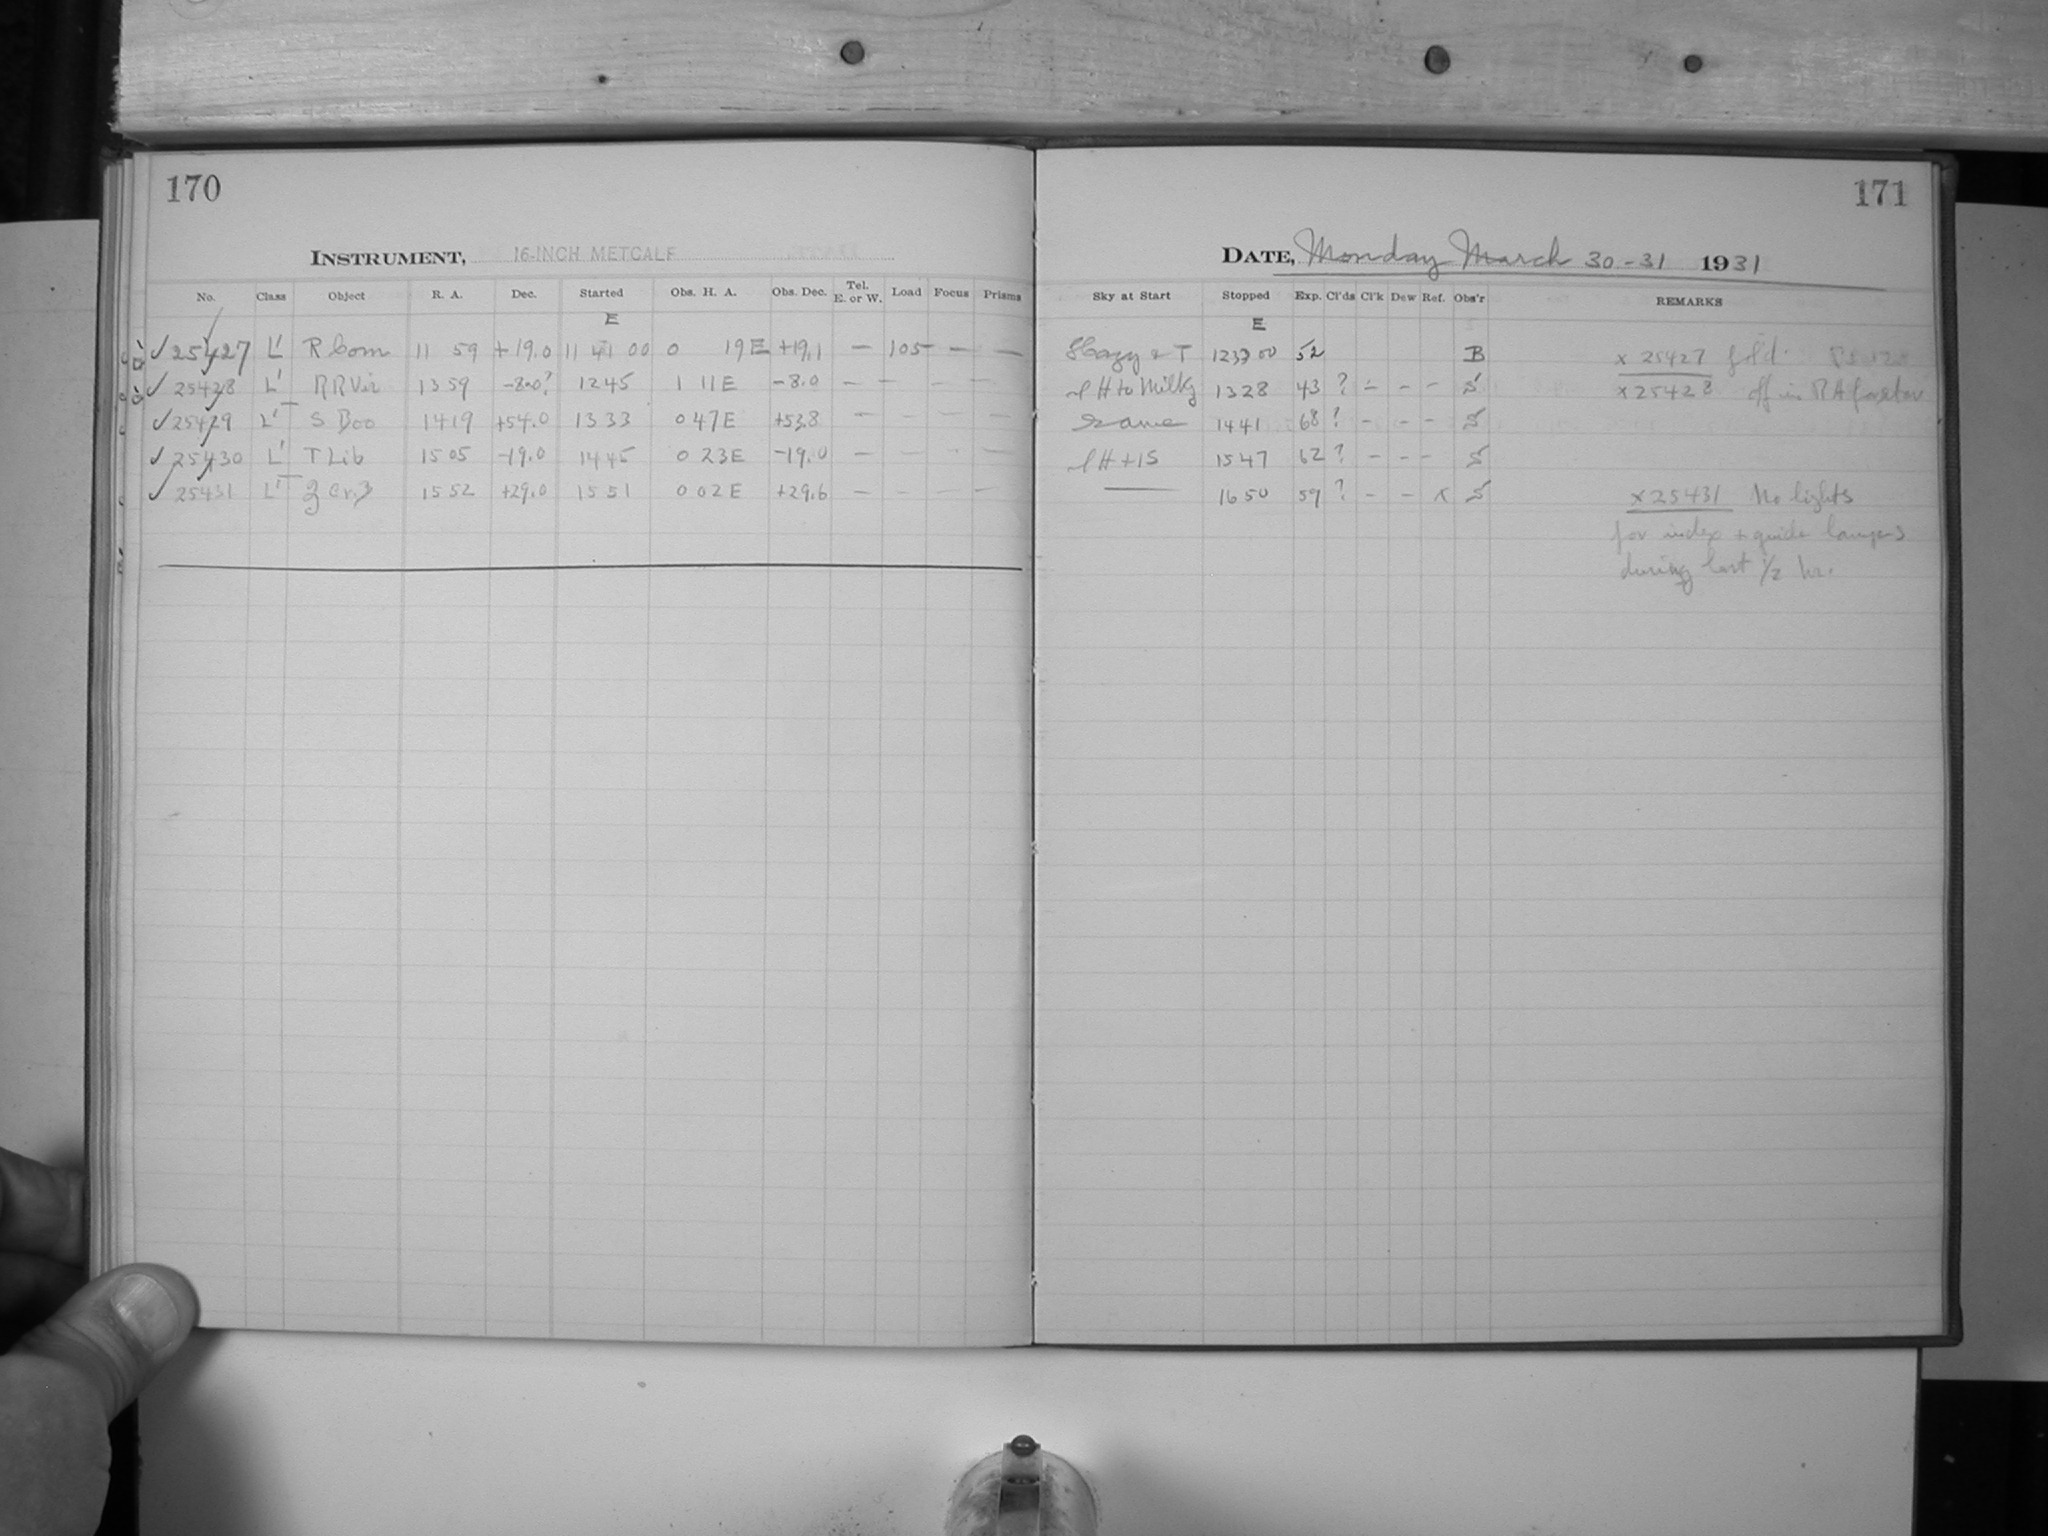 170
INSTRUMENT, 16-INCH METCALF
No. Class Object R. A. Dec. Started Obs. H. A. Obs. Dec. Tel. E. or W. Load Focus Prisms
E
✓ 25427 L' R Com 11 59 +19.0 11 41 00 0 19 E +19.1 — 105 — —
✓ 25428 L' RR Vir 13 59 -8.0? 12 45 1 11 E -8.0 — — — —
✓ 25429 L' S Boo 14 19 +54.0 13 33 0 47 E +53.8 — — — —
✓ 25430 L' T Lib 15 05 -19.0 14 45 0 23 E -19.0 — — — —
✓ 25431 L' Z CrB 15 52 +29.0 15 51 0 02 E +29.6 — — — —
171
DATE, Monday March 30-31 1931
Sky at Start Stopped Exp. Cl'ds Cl'k Dew Ref. Obs'r REMARKS
E
Hazy & T 12 33 00 52 B x 25427 fold.
H to Milky 13 28 43 ? - - - S x 25428 off in RA
Same 14 41 68 ? - - - S
H + 1S 15 47 62 ? - - - S
— 16 50 59 ? - - S x 25431 No lights
for index + guide lamps
during last 1/2 hr.